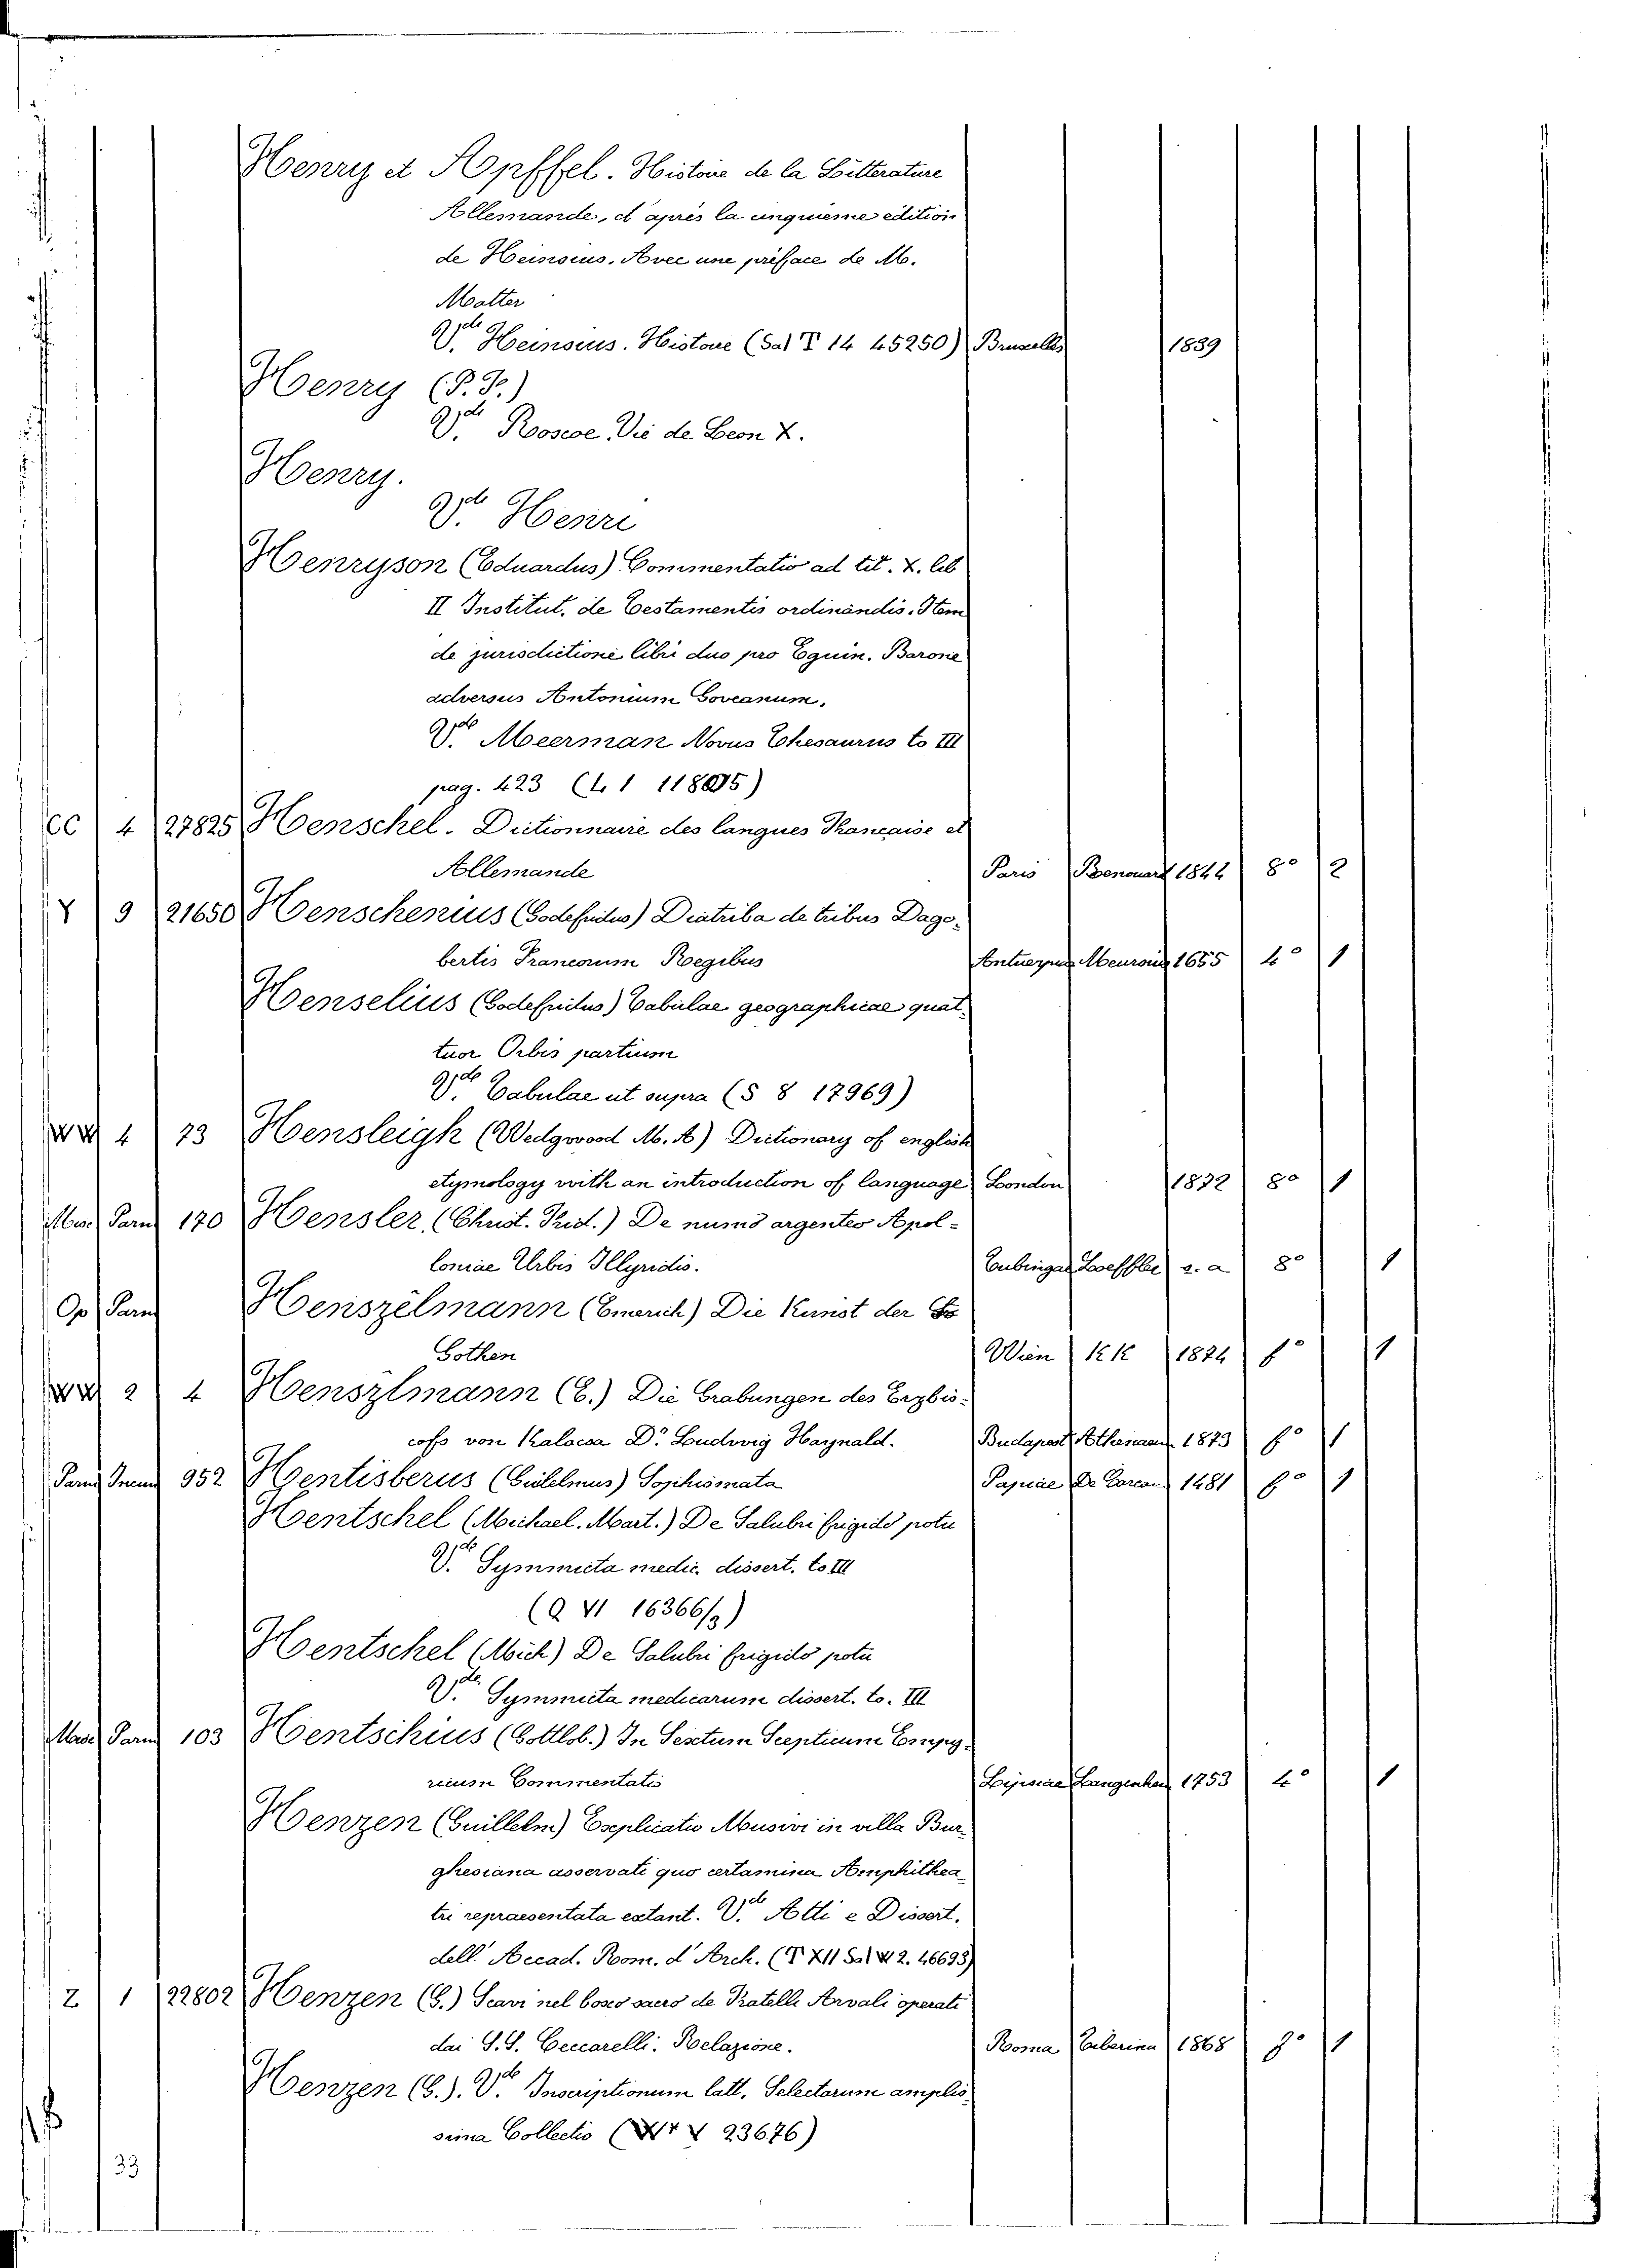 Henry et Apffel. Histoire de la Litterature
Allemande, d'après la cinquieme edition
de Heinsius. Avec une préface de M.
Matter
V.de Heinsius. Histoire (Sal T 14 45250) Bruxelles 1839
Henry (P. F.)
V.de Roscoe. Vie de Leon X.
Henry.
V.de Henri
Henryson (Eduardus) Commentatio ad tit. X. lib
II Institut. de Testamentis ordinandis. Item
de jurisdictione libri duo pro Eguin. Barone
adversus Antonium Goveanum.
V.de Meerman Novus Thesaurus to III
pag. 423 (L 1 11805)
CC 4 27825 Henschel. Dictionnaire des langues Française et
Allemande Paris Renouard 1842 8° 2
Y 9 21650 Henschenius (Godefridus) Diatriba de tribus Dago-
bertis Francorum Regibus Antuerpiae Meursius 1655 4° 1
Henselius (Godefridus) Tabulae geographicae quat-
tuor Orbis partium
V.de Tabulae ut supra (S 8 17969)
4 73 Hensleigh (Wedgwood M. A) Dictionary of english
etymology with an introduction of language London 1872 8° 1
Misc Parm 170 Hensler (Christ. Frid.) De numo argenteo Apol-
loniae Urbis Illyridis. Tubingae Loeffler s. a 8° 1
Op Parm Henszelmann (Emerich) Die Kunst der Go
Gothen Wien K K 1874 f° 1
2 4 Henszlmann (E.) Die Grabungen des Erzbis-
cofs von Kalocsa Dr Ludwig Haynald. Budapest Athenaeum 1873 f° 1
Parm 952 Hentisberus (Guilelmus) Sophismata Papiae De 1481 f° 1
Hentschel (Michael. Mart.) De Salubri frigido potu
V.de Symmicta medic. dissert. to III
(Q VI 16366/3)
Hentschel (Mich) De Salubri frigido potu
V.de Symmicta medicarum dissert. to. III
Misc Parm 103 Hentschius (Gottlob.) In Sextum Scepticum Empy-
ricum Commentatio Lipsiae Langenhem 1753 4° 1
Henzen (Guillelm) Explicatio Musivi in villa Bur-
ghesiana asservati quo certamina Amphithea
tri repraesentata extant. V.de Atti e Dissert.
dell. Accad. Rom. d'Arch. (T XII Sal 2. 46693)
Z 1 22802 Henzen (G.) Scavi nel bosco sacro de Fratelli Arvali operati
dai S.S. Ceccarelli. Relazione. Roma Tiberina 1868 f° 1
Henzen (G.). V.de Inscriptionum latt. Selectarum amplis-
sima Collectio (V 23676)
33